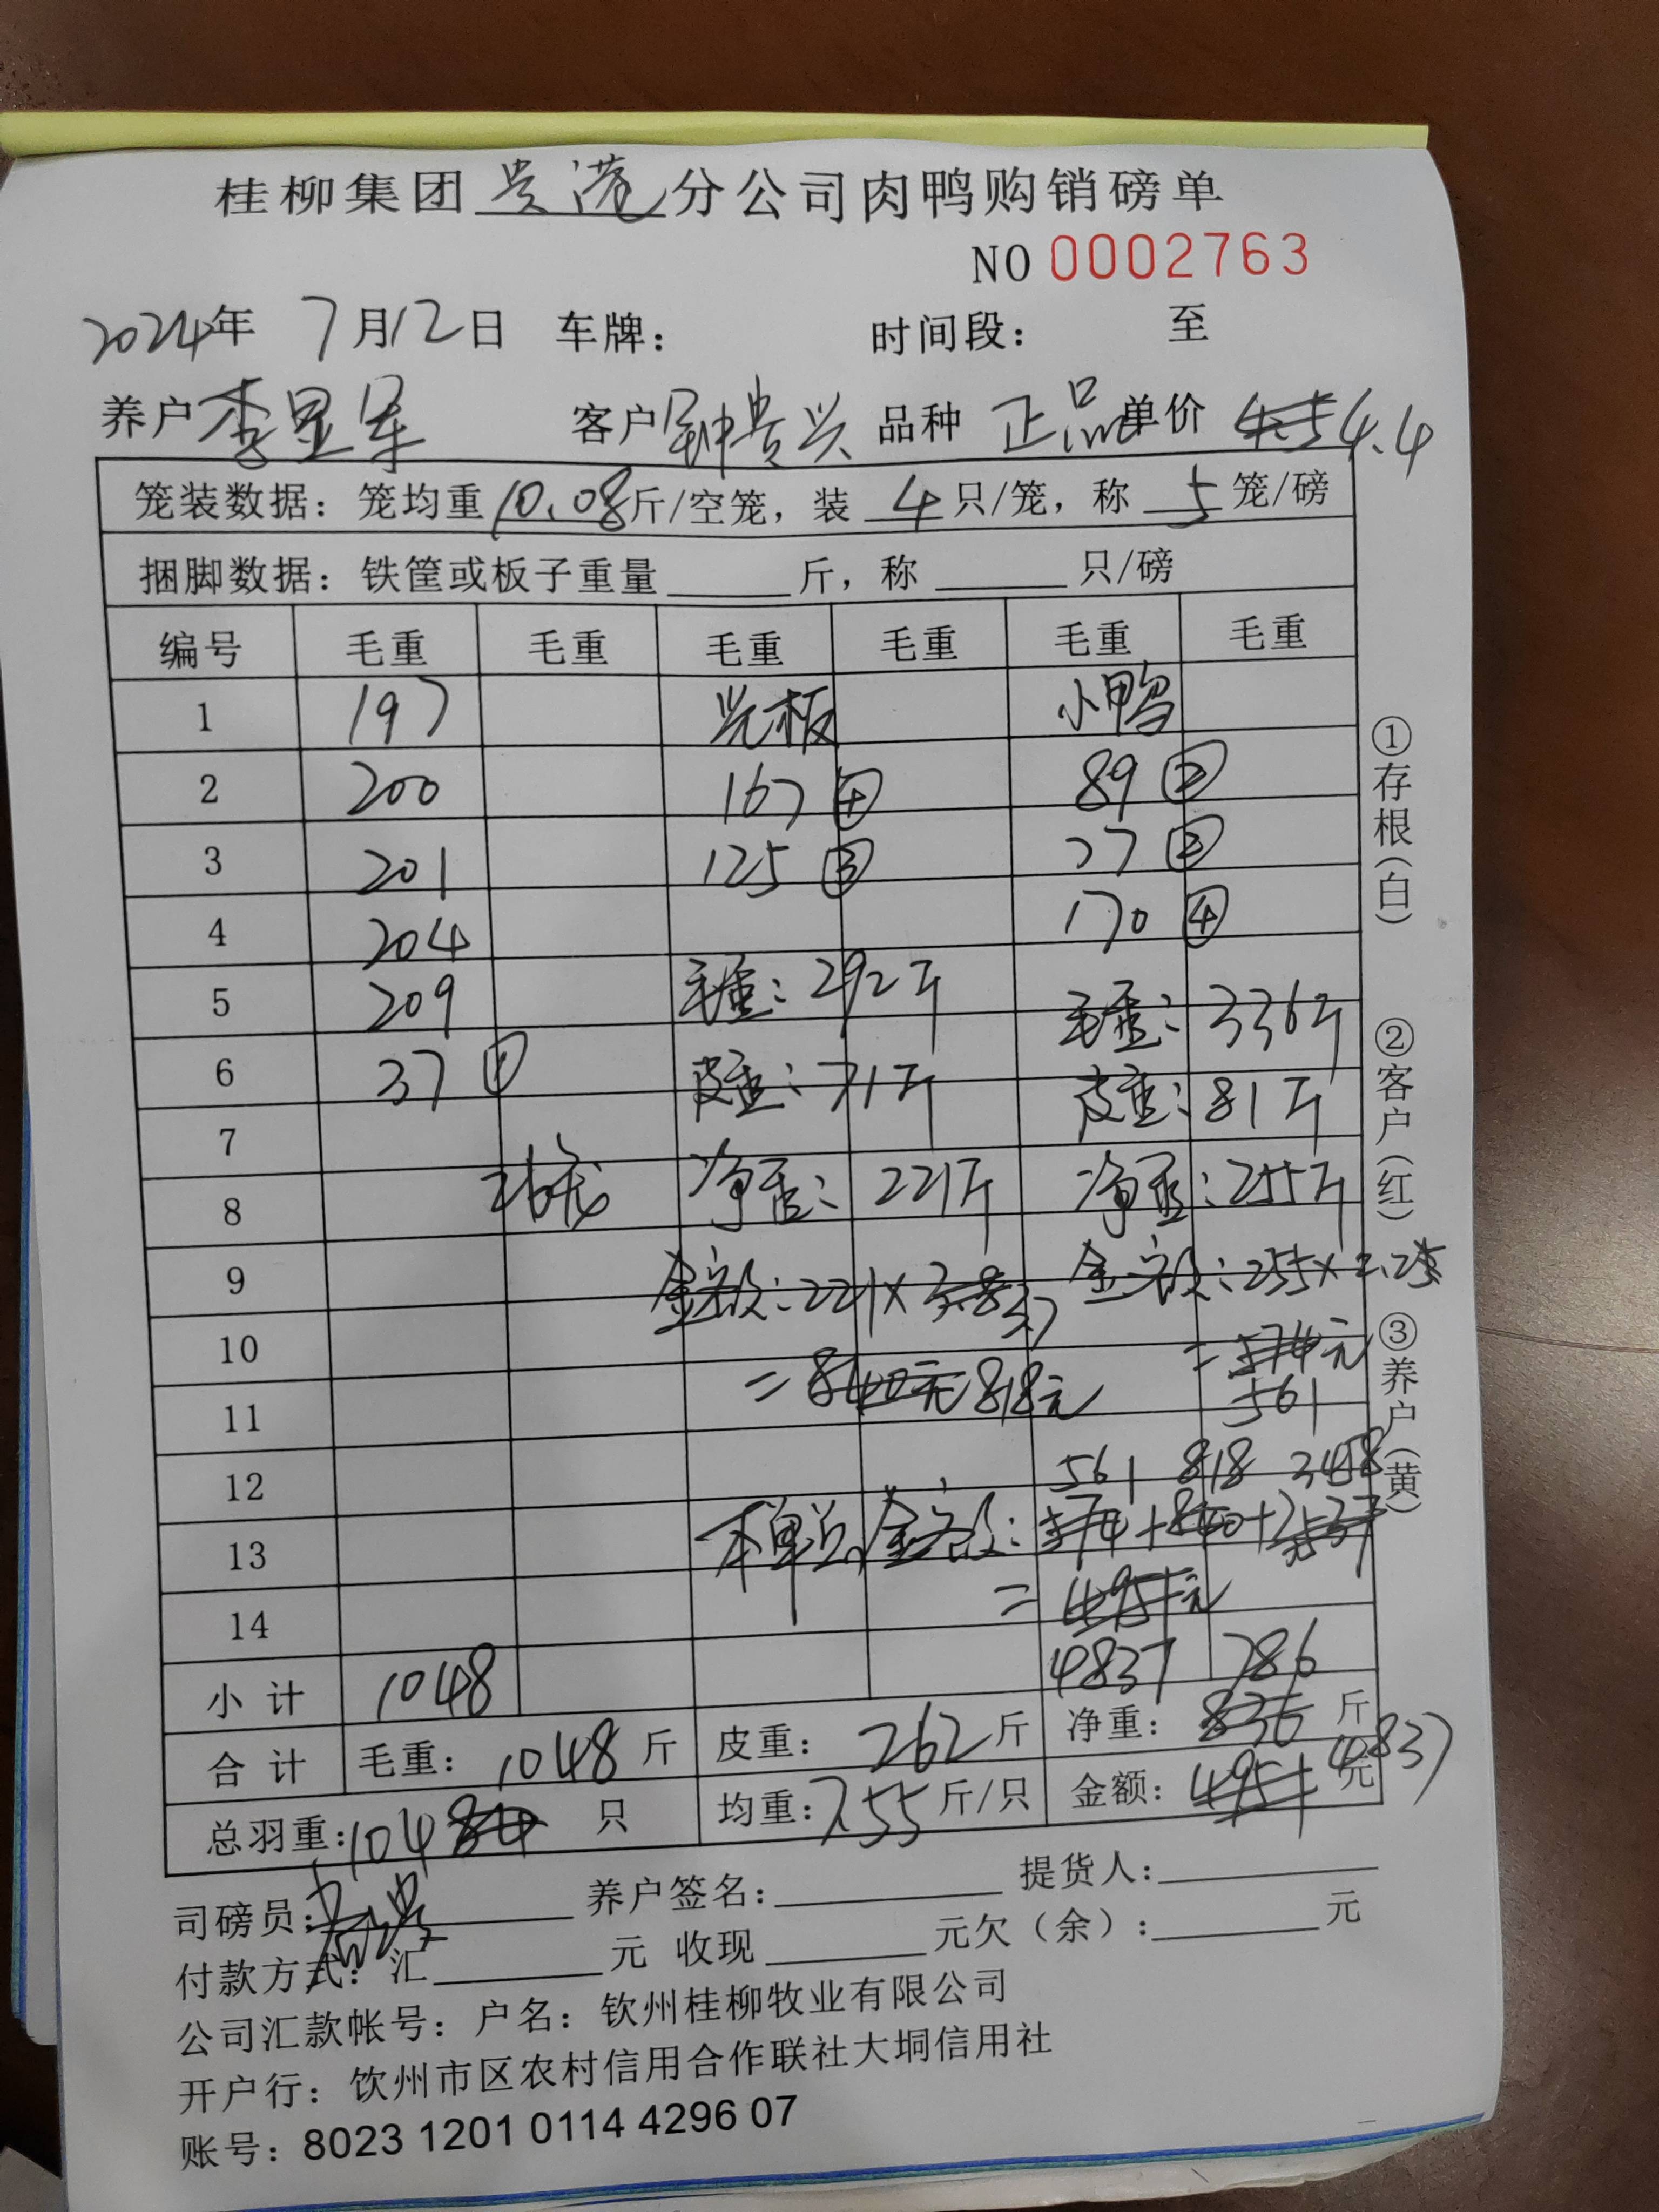 桂柳集团 贵港 分公司肉鸭购销磅单
NO 0002763
2024年 7月12日 车牌： 时间段： 至
养户 李显军 客户 钟贵兴 品种 正品 单价 4.4
笼装数据：笼均重 10.08 斤/空笼，装 4 只/笼，称 5 笼/磅
捆脚数据：铁筐或板子重量 斤，称 只/磅
编号 毛重 毛重 毛重 毛重 毛重 毛重
1 197 光板 小鸭
2 200 167 ④ 89 ②
3 201 125 ③ 77 ②
4 204 170 ④
5 209 毛重：292斤 毛重：336斤
6 37 ① 皮重：71斤 皮重：81斤
7
8 净重：221斤 净重：255斤
9 金额：221×3.8 3.7 金额：255×2.2
10 =840元 818元 =574元
11 561
12 561 818 3458
13 本单总金额：574+840+3537
14 =4951元
小计 1048 4837 786
合计 毛重：1048斤 皮重：262斤 净重：836斤
总羽重：104 84 只 均重：7.55斤/只 金额：4951 4837元
司磅员： 养户签名： 提货人：
付款方式：汇 元 收现 元欠（余）： 元
公司汇款帐号：户名：钦州桂柳牧业有限公司
开户行：钦州市区农村信用合作联社大垌信用社
账号：8023 1201 0114 4296 07
①存根（白）
②客户（红）
③养户（黄）